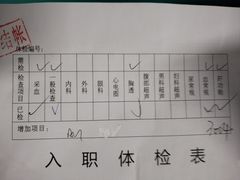 结帐
体检编号:
需检 ✓ ✓ ✓ ✓ ✓
检查项目 采血 一般检查 内科 外科 眼科 心电图 胸透 腹部超声 男科超声 妇科超声 尿常规 血常规 肝功能
已检 ✓ ✓ ✓
增加项目:
入职体检表